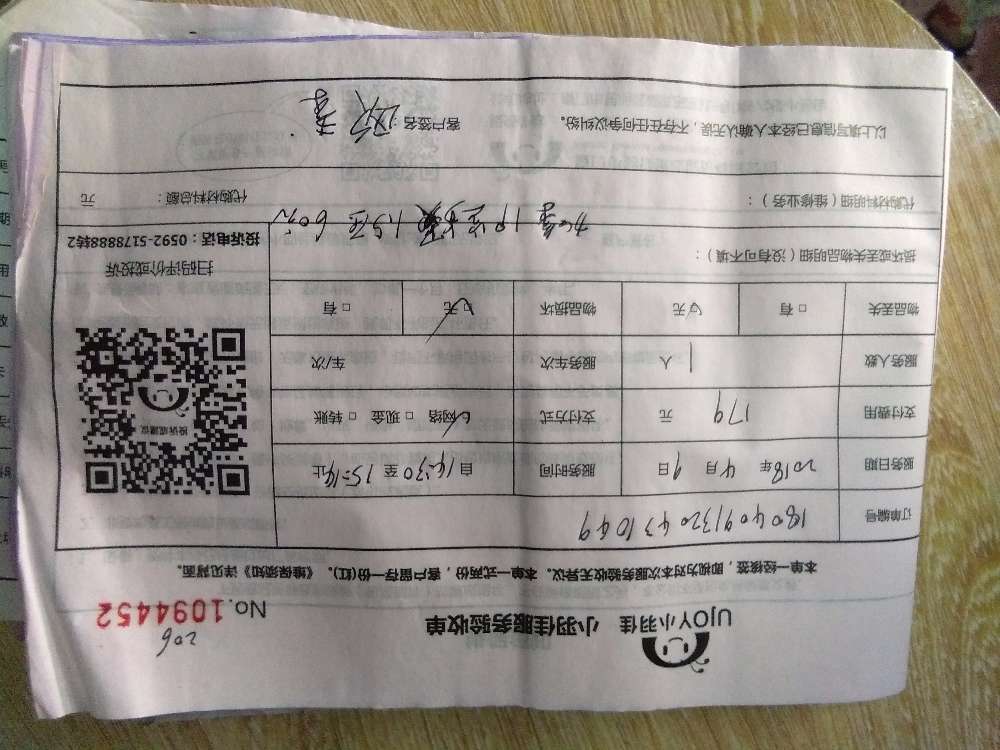 206
UJOY小羽佳 小羽佳服务验收单 No.1094452
本单一经核签，即视为对本次服务验收无异议。本单一式两份，客户留存一份(红)。《维保须知》详见背面。
订单编号 180409132043 1049
服务日期 2018年 4月 9日 服务时间 自14:30至15:14止
支付费用 179 元 支付方式 ☑网络 □现金 □转账
服务人数 1 人 服务车次 车/次
物品丢失 □有 ☑无 物品损坏 ☑无 □有
投诉或建议
扫码评价或投诉
投诉电话：0592-5178888转2
损坏或丢失物品明细（没有可不填）：
代购材料明细（维修业务）： 代购材料总额： 元
以上填写信息已经本人确认无误，不存在任何争议纠纷。 客户签名：